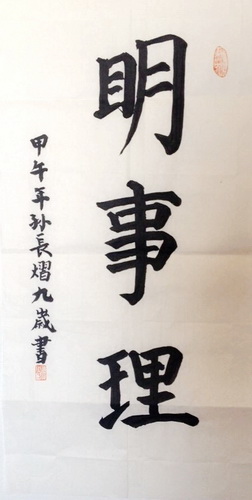 明事理
甲午年孙長熠九歲書